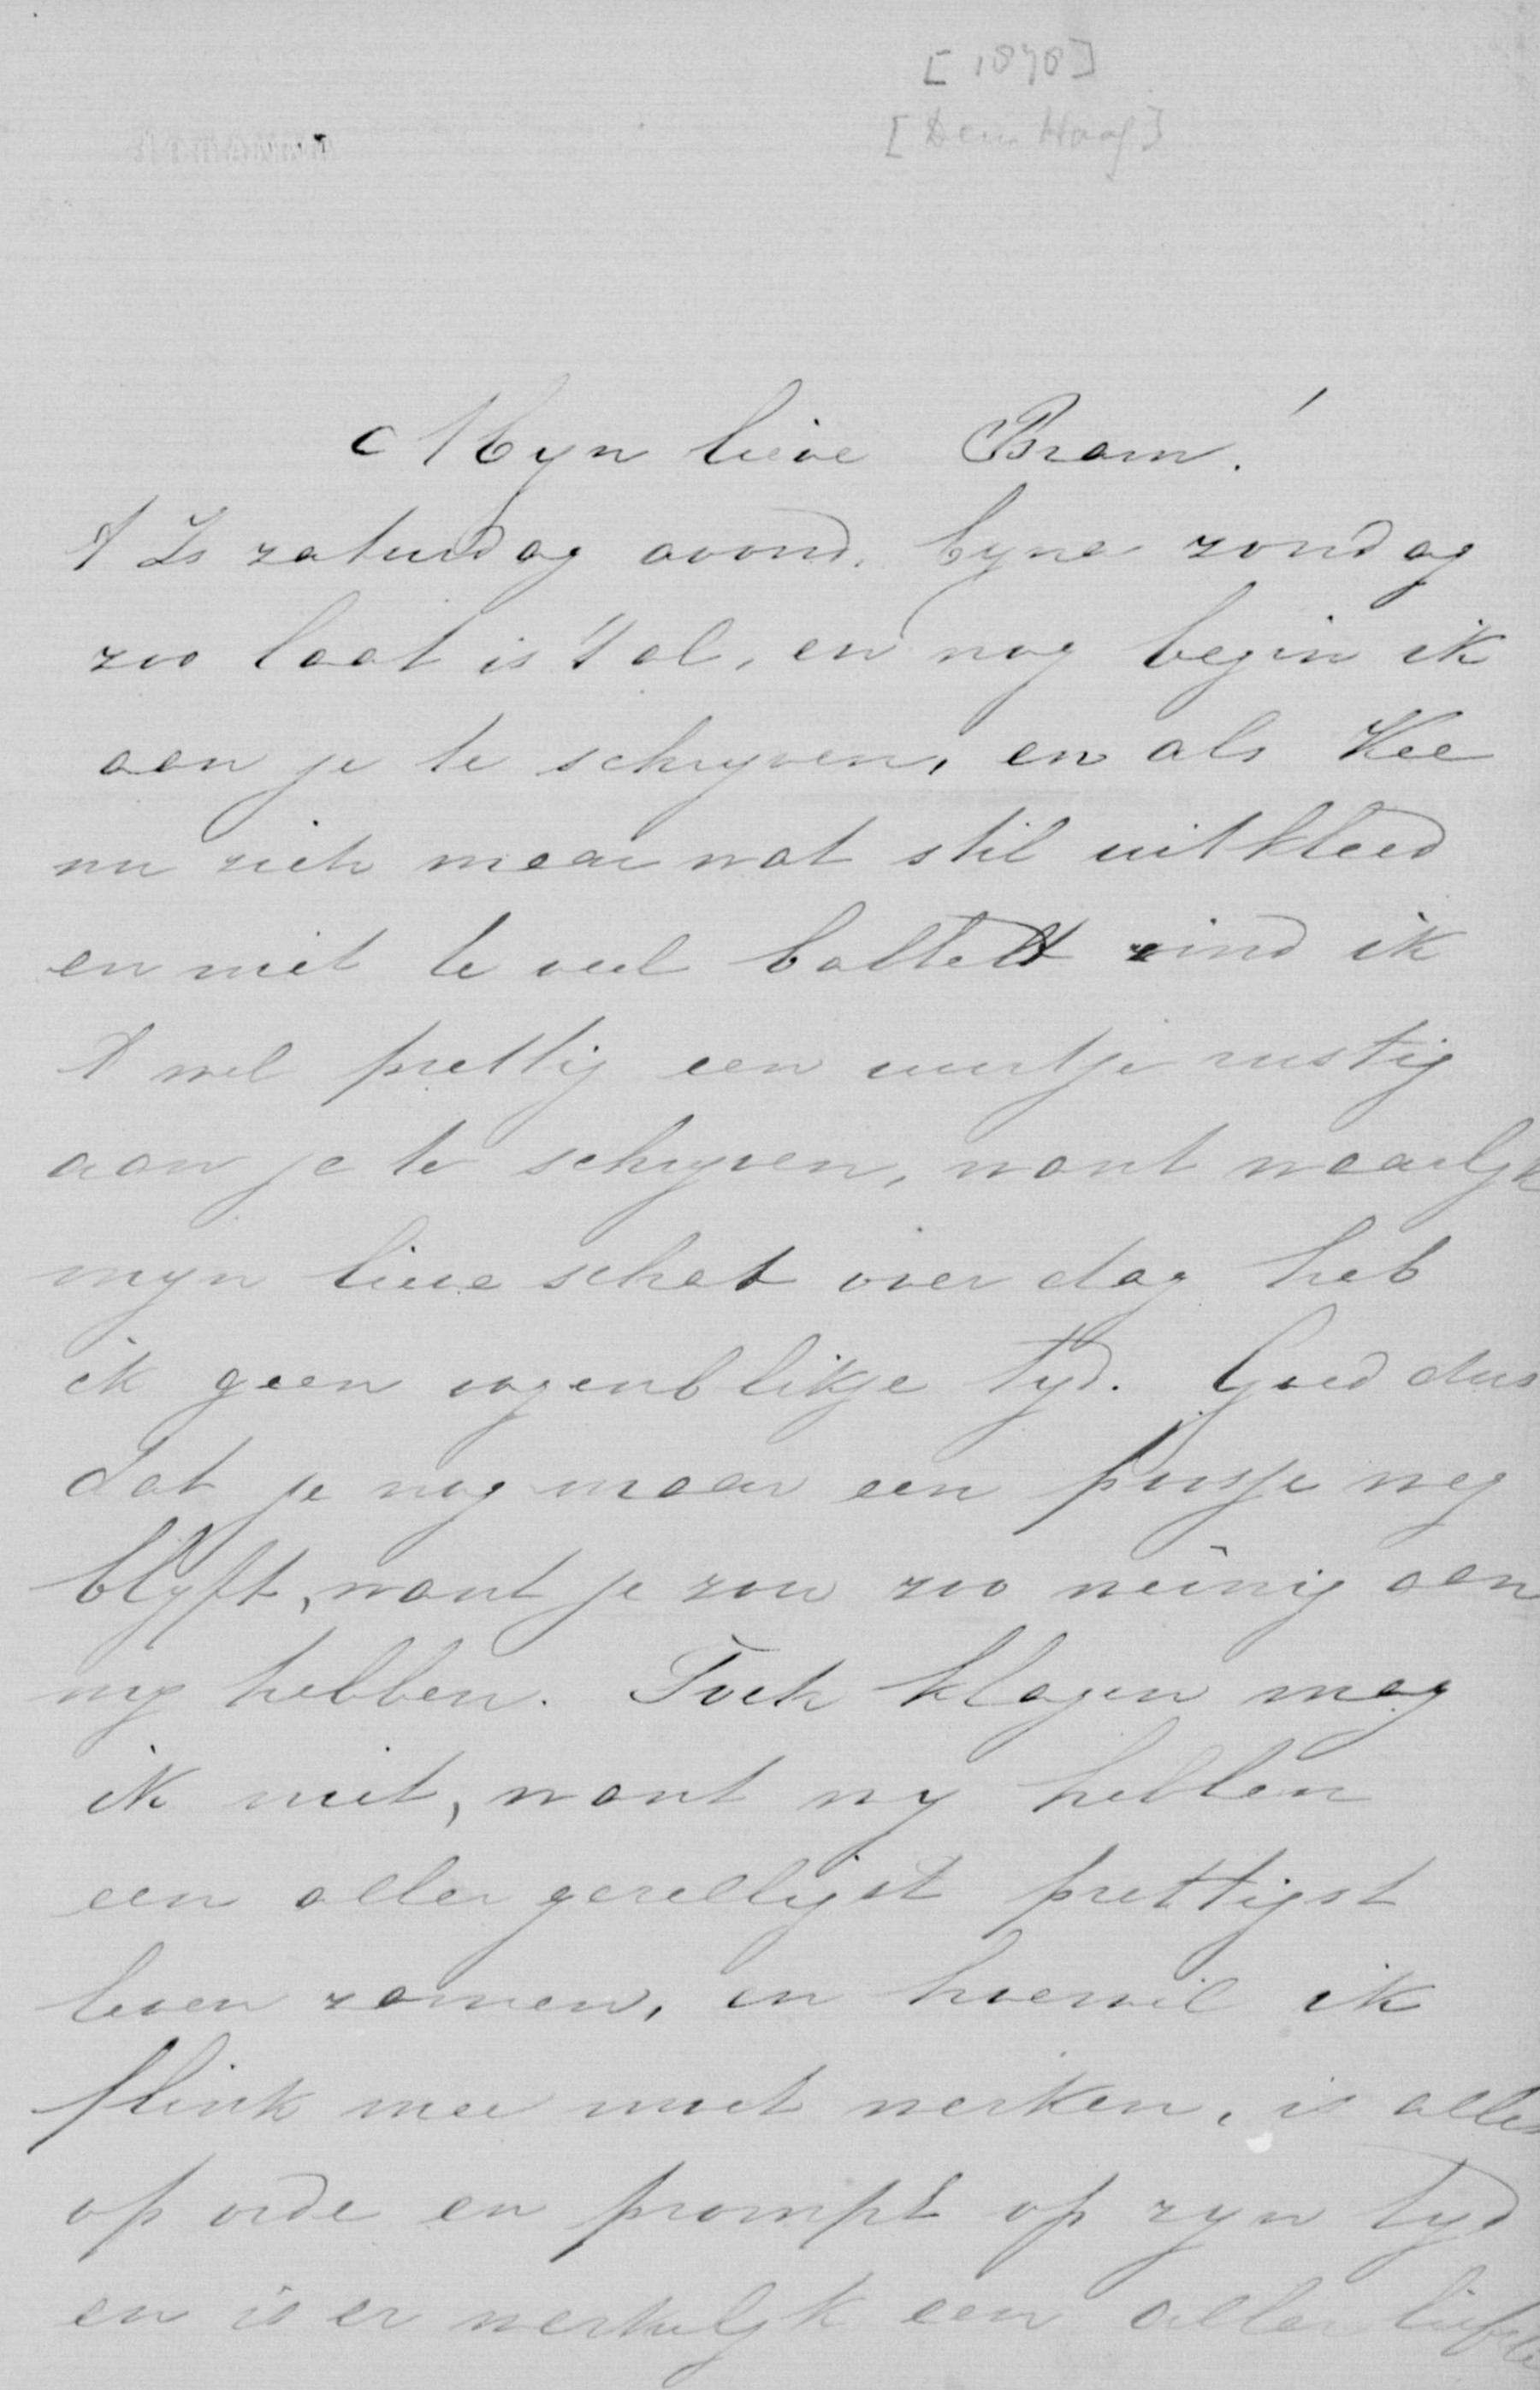 [1878]
[Den Haag]
Myn lieve Bram!
't Is zaturdag avond, byna zondag
zoo laat is 't al, en nog begin ik
aan je te schryven, en als Kee
nu zich maar wat stil uitkleed
en niet te veel babbelt vind ik
't wel prettig een uurtje rustig
aan je te schryven, want waarlyk
myn lieve schat over dag heb
ik geen oogenblikje tyd. Goed dus
dat je nog maar een poosje weg
blyft, want je zou zoo weinig aan
my hebben. Toch klagen mag
ik niet, want wy hebben
een aller gezelligst prettigst
leven zamen, en hoewel ik
flink mee moet werken, is alles
op orde en prompt op zyn tyd
en is er werkelyk een aller liefste